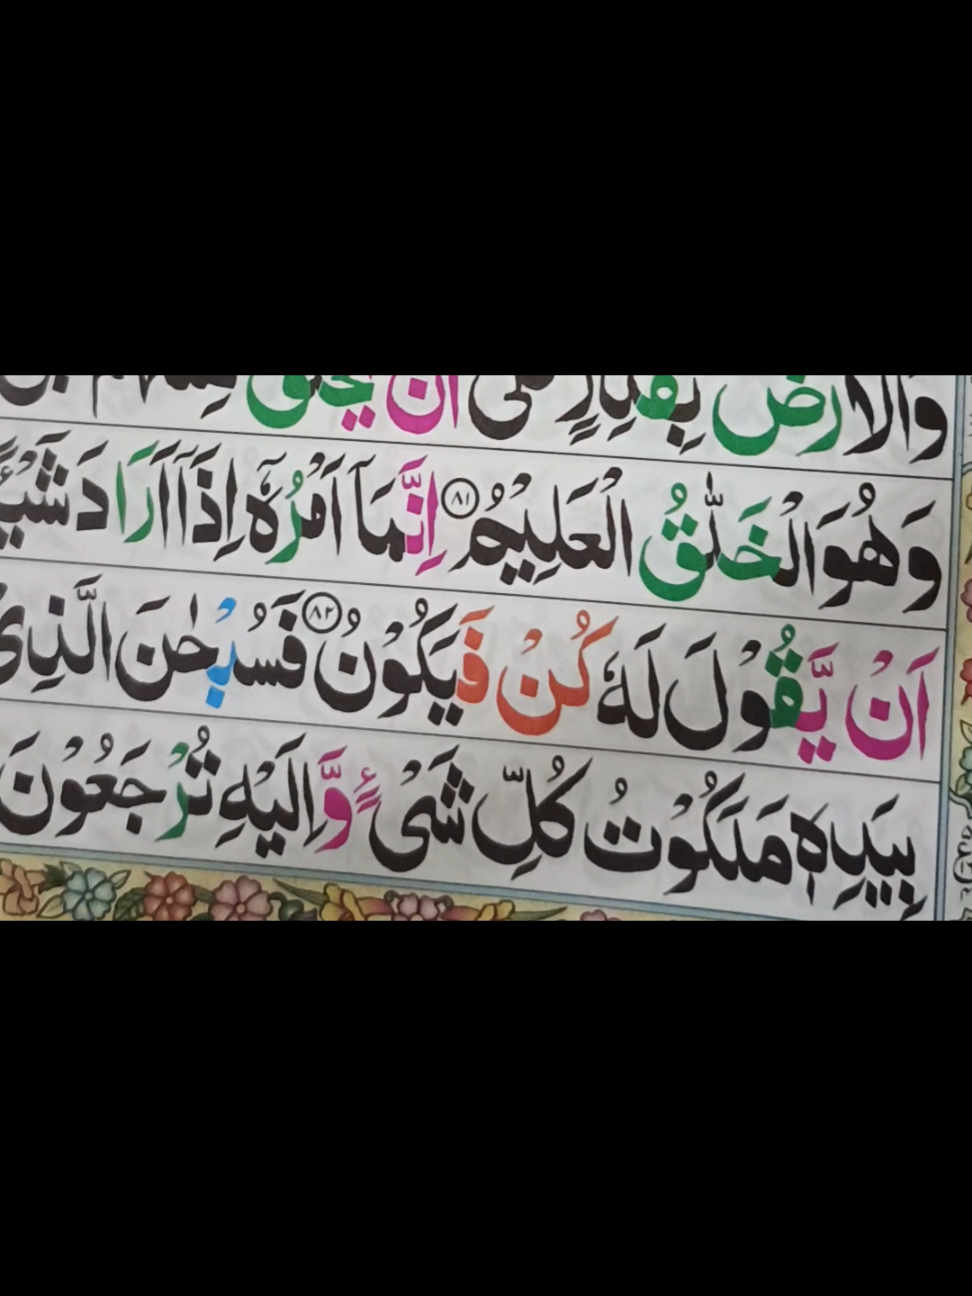 وَالْاَرْضَ بِقٰدِرٍ عَلٰٓى اَنْ يَّخْلُقَ
وَهُوَ الْخَلّٰقُ الْعَلِيْمُ ﴿٨١﴾ اِنَّمَاۤ اَمْرُهٗۤ اِذَاۤ اَرَادَ شَيْـًٔا
اَنْ يَّقُوْلَ لَهٗ كُنْ فَيَكُوْنُ ﴿٨٢﴾ فَسُبْحٰنَ الَّذِيْ
بِيَدِهٖ مَلَكُوْتُ كُلِّ شَيْءٍ وَّاِلَيْهِ تُرْجَعُوْنَ